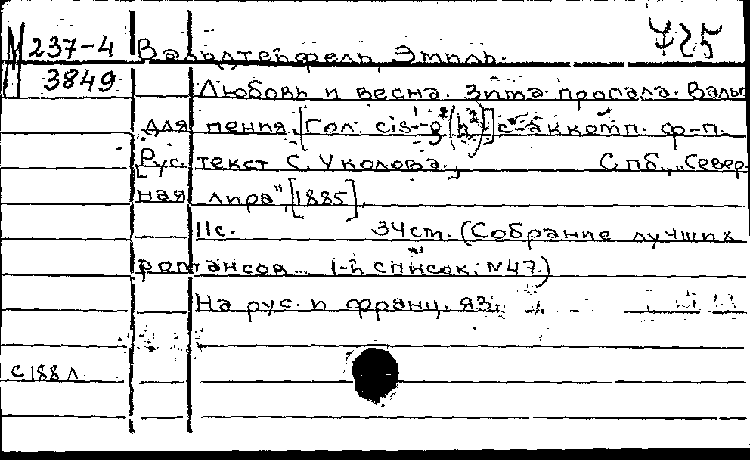 М 237-4 Вальдтейфель, Эмиль. 425
3849
Любовь и весна. Зима пропала. Вальс
для пения. [Гол. cis¹-g²(h²)] с аккомп. ф-п.
[Рус. текст С. Уколова.], Спб., „Север-
ная лира", [1885].
11с. 34см. (Собрание лучших
романсов... 1-й список: №47.)
На рус. и франц. яз.
С 188 л